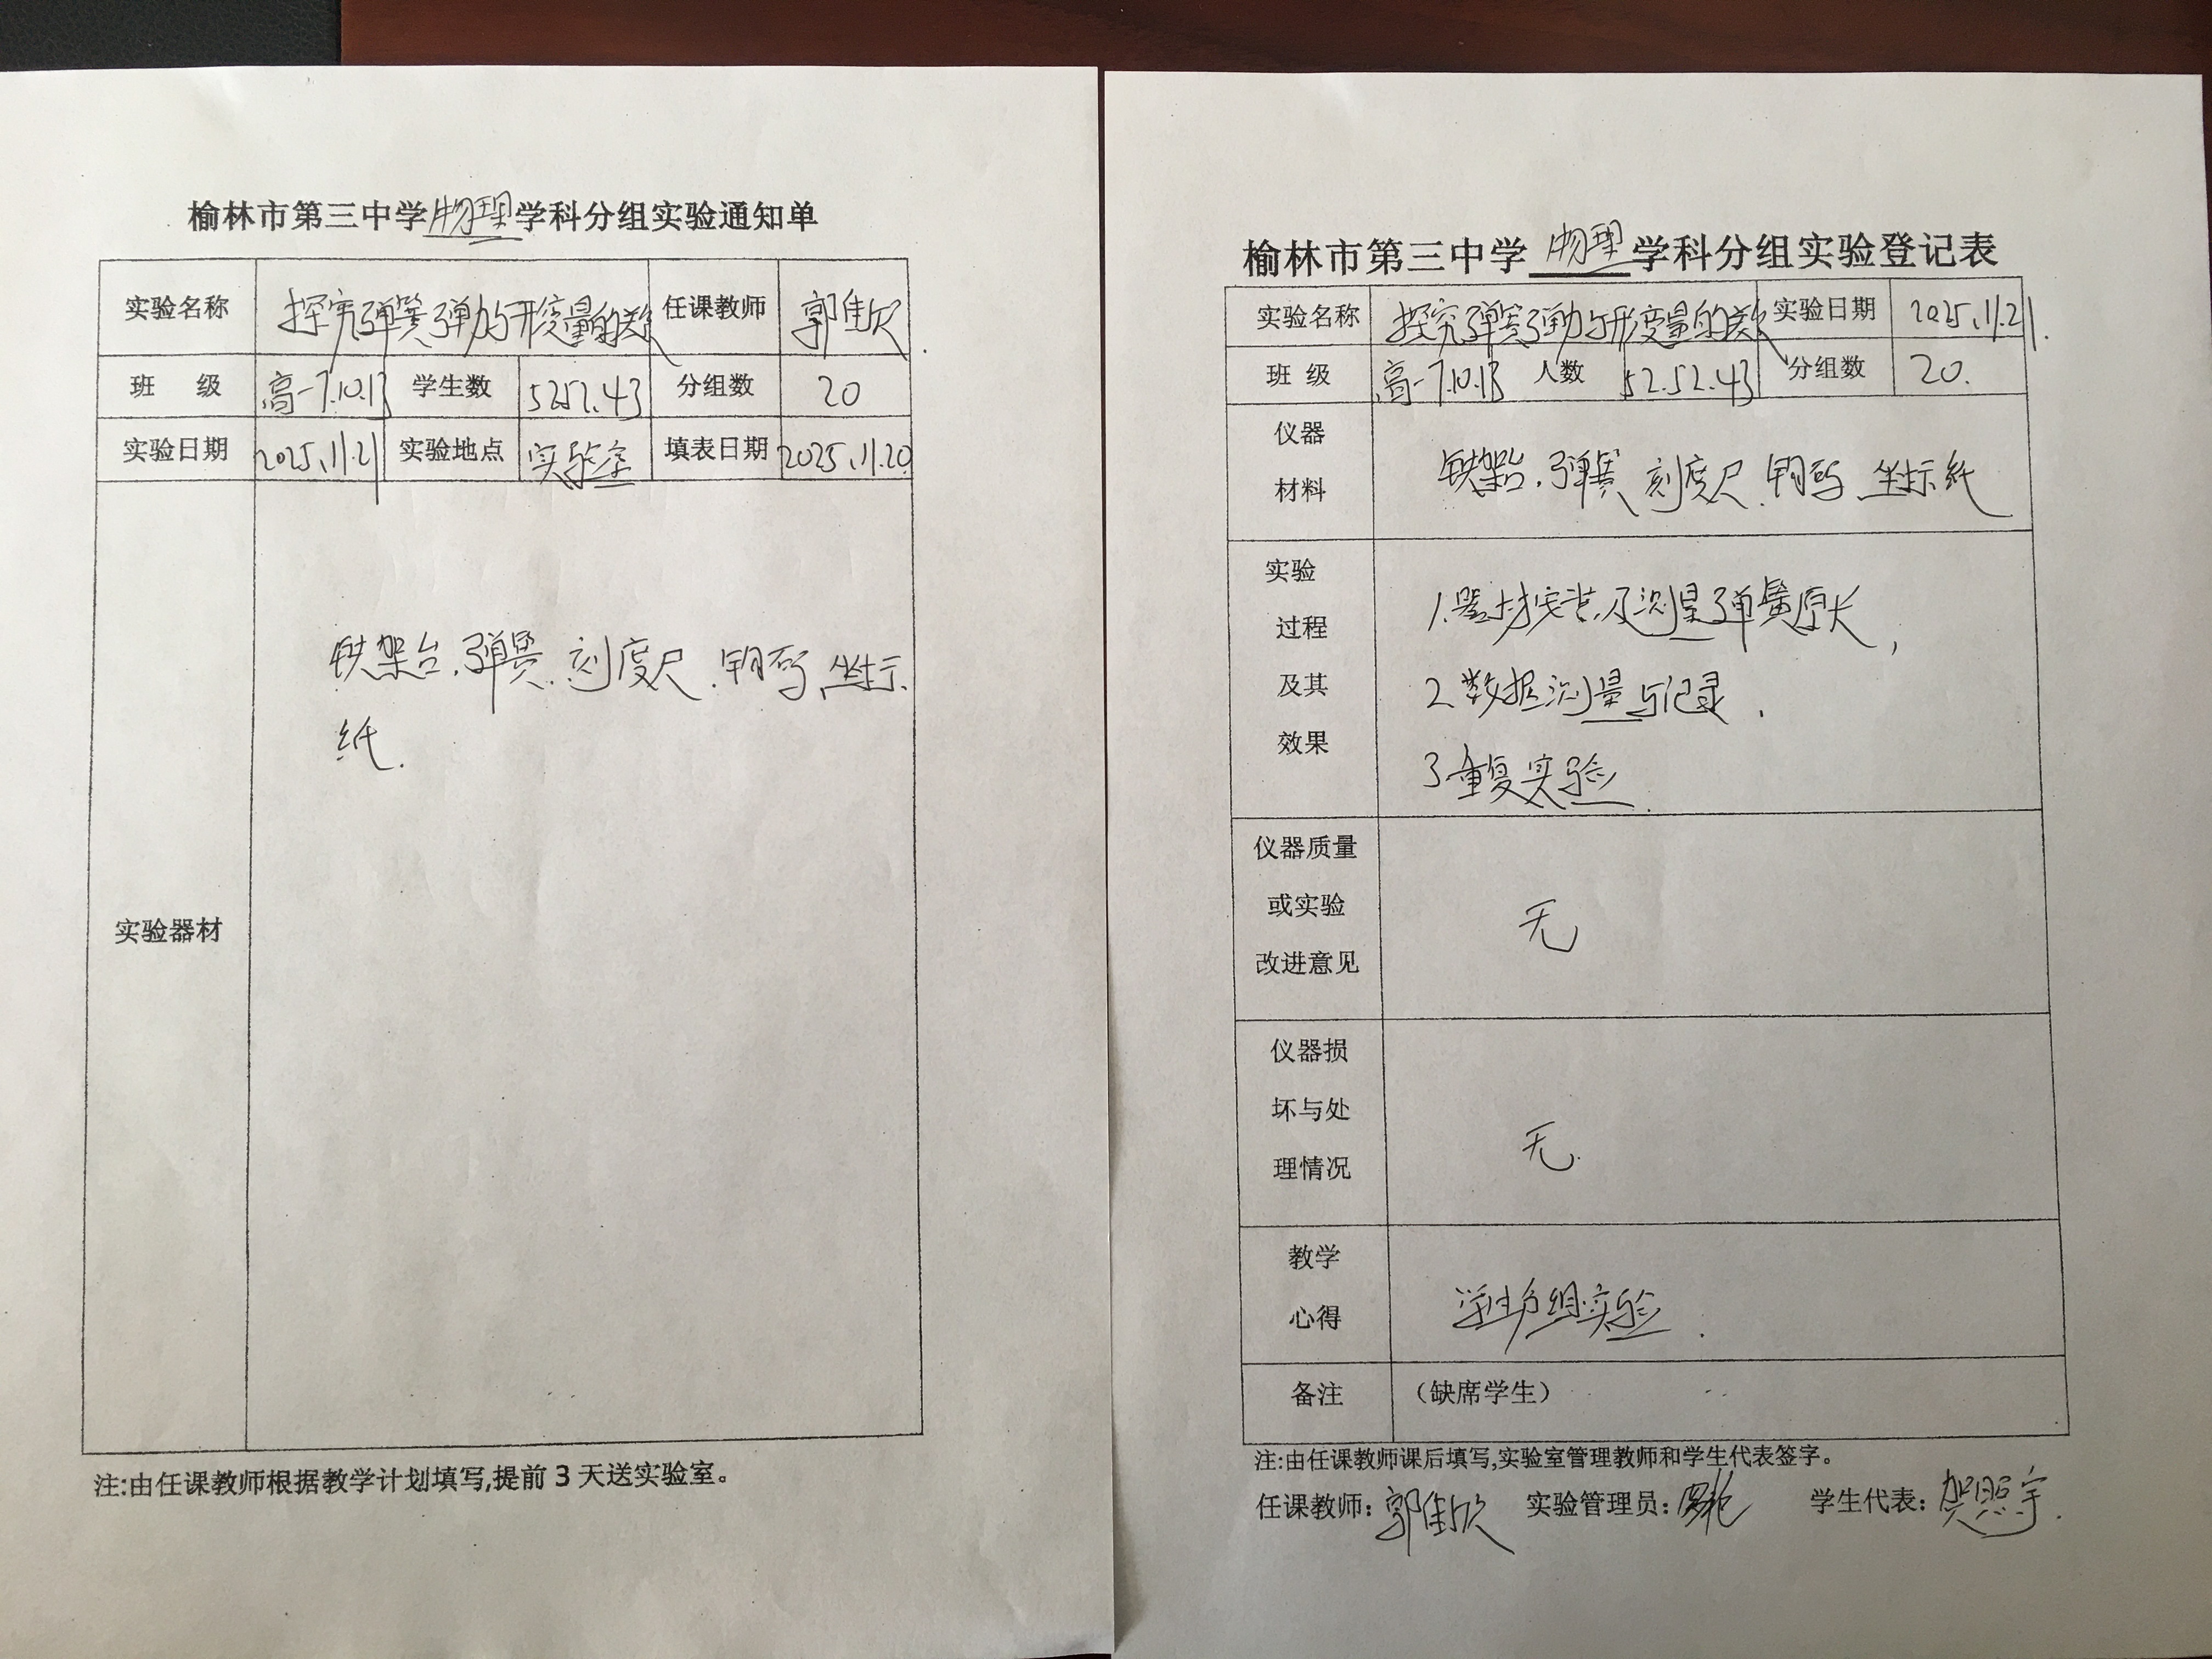 榆林市第三中学物理学科分组实验通知单
实验名称 探究弹簧弹力与形变量的关系 任课教师 郭佳欣
班 级 高一7.10.13 学生数 52.52.43 分组数 20
实验日期 2025.11.21 实验地点 实验室 填表日期 2025.11.20
实验器材
铁架台、弹簧、刻度尺、钩码、坐标
纸.
注:由任课教师根据教学计划填写,提前3天送实验室。
榆林市第三中学物理学科分组实验登记表
实验名称 探究弹簧弹力与形变量的关系 实验日期 2025.11.21.
班 级 高一7.10.13 人数 52.52.43 分组数 20.
仪器
材料
铁架台、弹簧、刻度尺、钩码、坐标纸
实验
过程
及其
效果
1.器材安装及测量弹簧原长,
2.数据测量与记录.
3.重复实验.
仪器质量
或实验
改进意见
无
仪器损
坏与处
理情况
无.
教学
心得
学生分组实验.
备注 (缺席学生)
注:由任课教师课后填写,实验室管理教师和学生代表签字。
任课教师: 郭佳欣 实验管理员: 学生代表: 贺照宇.